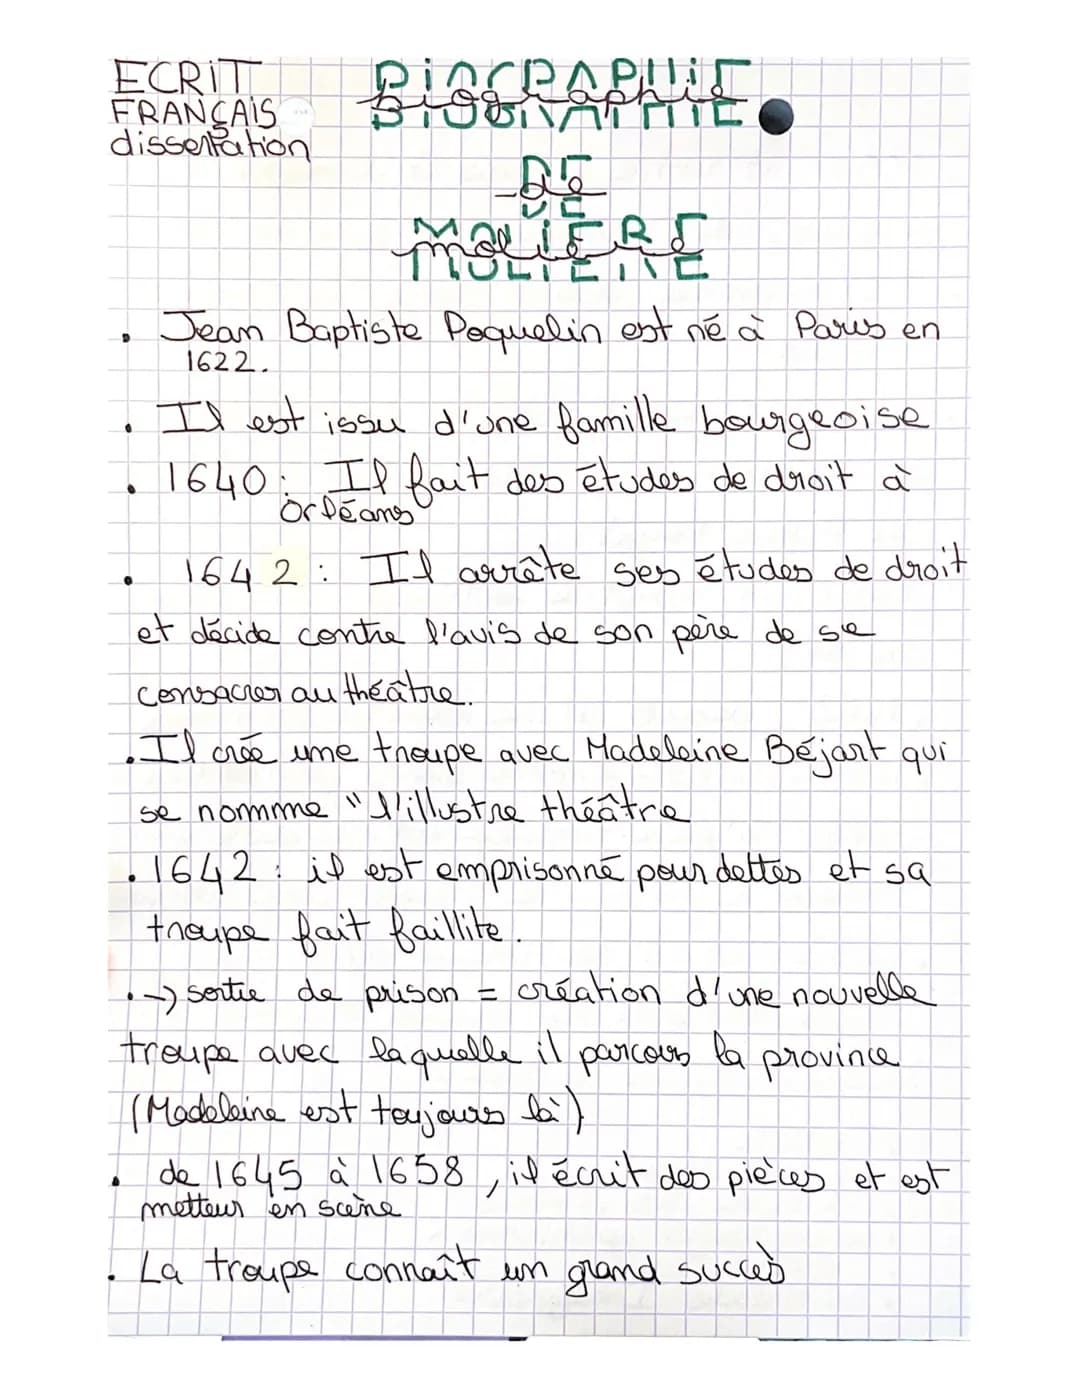 ECRIT
FRANÇAIS
dissertation
BIOGRAPHIE
Biographie
DE
de
MOLIERE
moliere
. Jean Baptiste Poquelin est né à Paris en
1622.
. Il est issu d'une famille bourgeoise
. 1640: Il fait des études de droit à
Orléans
. 1642: Il arrête ses études de droit
et décide contre l'avis de son père de se
consacrer au théâtre.
. Il crée une troupe avec Madeleine Béjart qui
se nomme "l'illustre théâtre
. 1642: il est emprisonné pour dettes et sa
troupe fait faillite.
. → sortie de prison = création d'une nouvelle
troupe avec laquelle il parcours la province
(Madeleine est toujours là)
. de 1645 à 1658, il écrit des pièces et est
metteur en scène
. La troupe connaît un grand succès